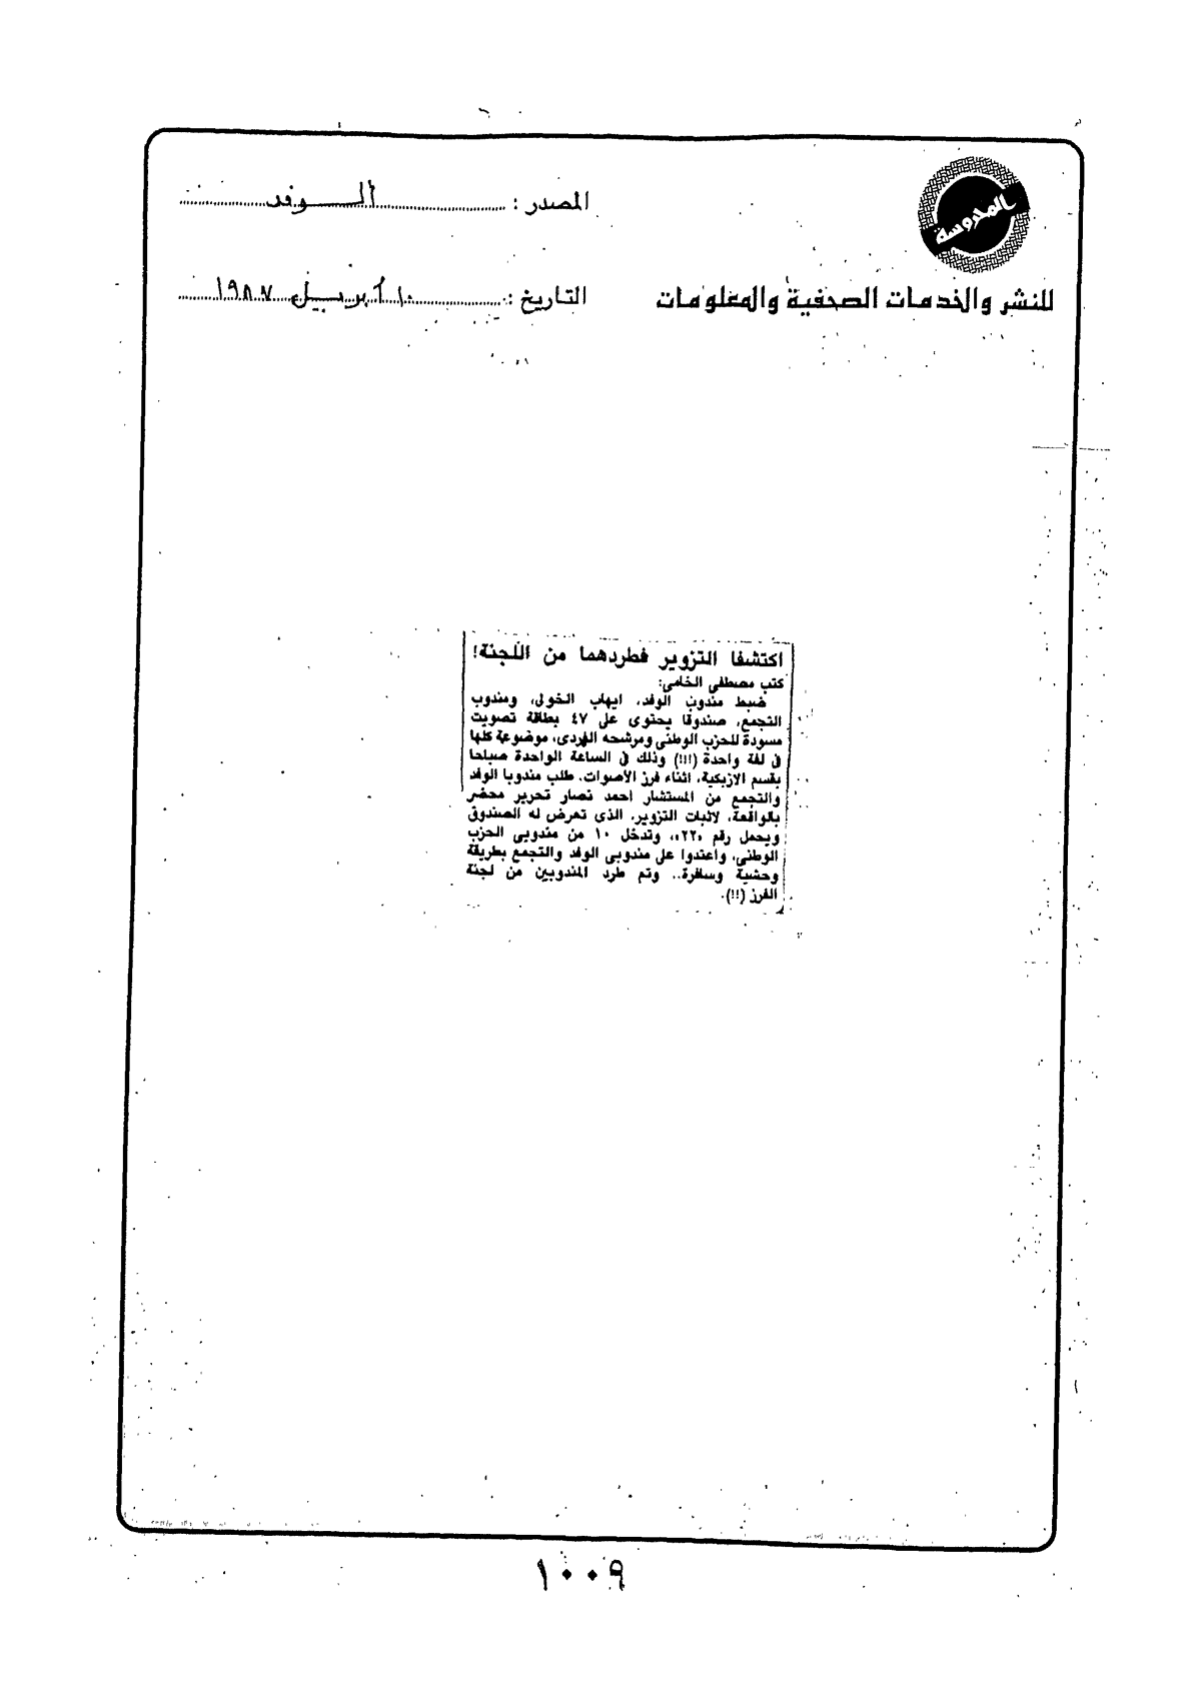 المحروسة
للنشر والخدمات الصحفية والمعلومات
المصدر : الوفد
التاريخ : ١٠ أبريل ١٩٨٧
اكتشفا التزوير فطردهما من اللجنة!
كتب مصطفى الخامى:
ضبط مندوب الوفد، ايهاب الخولى، ومندوب
التجمع، صندوقا يحتوى على ٤٧ بطاقة تصويت
مسودة للحزب الوطنى ومرشحه الفردى، موضوعة كلها
فى لفة واحدة (!!!) وذلك فى الساعة الواحدة صباحا
بقسم الازبكية، اثناء فرز الأصوات، طلب مندوبا الوفد
والتجمع من المستشار احمد نصار تحرير محضر
بالواقعة، لاثبات التزوير، الذى تعرض له الصندوق
ويحمل رقم «٢٢»، وتدخل ١٠ من مندوبى الحزب
الوطنى، واعتدوا على مندوبى الوفد والتجمع بطريقة
وحشية وسافرة.. وتم طرد المندوبين من لجنة
الفرز (!!).
١٠٠٩